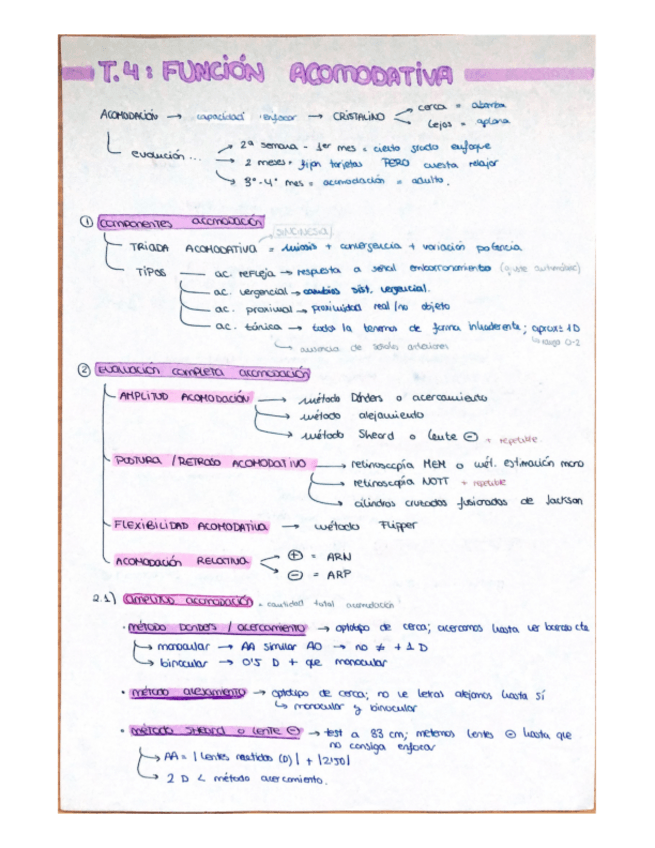 T.4: FUNCIÓN ACOMODATIVA
ACOMODACIÓN → capacidad enfocar → CRISTALINO
cerca = abomba
lejos = aplana
evolución...
2ª semana - 1er mes = cierto grado enfoque
2 meses = fijan tarjetas PERO cuesta relajar
3º-4º mes = acomodación = adulto.
① COMPONENTES ACOMODACIÓN
(SINCINESIA)
TRIADA ACOMODATIVA = miosis + convergencia + variación potencia
TIPOS
ac. refleja → respuesta a señal emborronamiento (ajuste automático)
ac. vergencial → cambios sist. vergencial.
ac. proximal → proximidad real/no objeto
ac. tónica → todos la tenemos de forma inherente; aprox: 1D
↳ rango 0-2
↳ ausencia de señales anteriores
② EVALUACIÓN COMPLETA ACOMODACIÓN
AMPLITUD ACOMODACIÓN
método Donders o acercamiento
método alejamiento
método Sheard o lente ⊖ + repetible
POSTURA / RETRASO ACOMODATIVO
retinoscopía MEM o mét. estimación mono
retinoscopía NOTT + repetible
cilindros cruzados fusionados de Jackson
FLEXIBILIDAD ACOMODATIVA → método Flipper
ACOMODACIÓN RELATIVA
⊕ = ARN
⊖ = ARP
2.1) AMPLITUD ACOMODACIÓN = cantidad total acomodación
· MÉTODO DONDERS / ACERCAMIENTO → optotipo de cerca; acercamos hasta ver borroso cte
↳ monocular → AA similar AO → no ≠ + 1 D
↳ binocular → 0'5 D + que monocular
· MÉTODO ALEJAMIENTO → optotipo de cerca; no ve letras alejamos hasta sí
↳ monocular y binocular
· MÉTODO SHEARD O LENTE ⊖ → test a 33 cm; metemos lentes ⊖ hasta que
no consiga enfocar
↳ AA = | lentes metidas (D) | + |2'50|
↳ 2 D < método acercamiento.